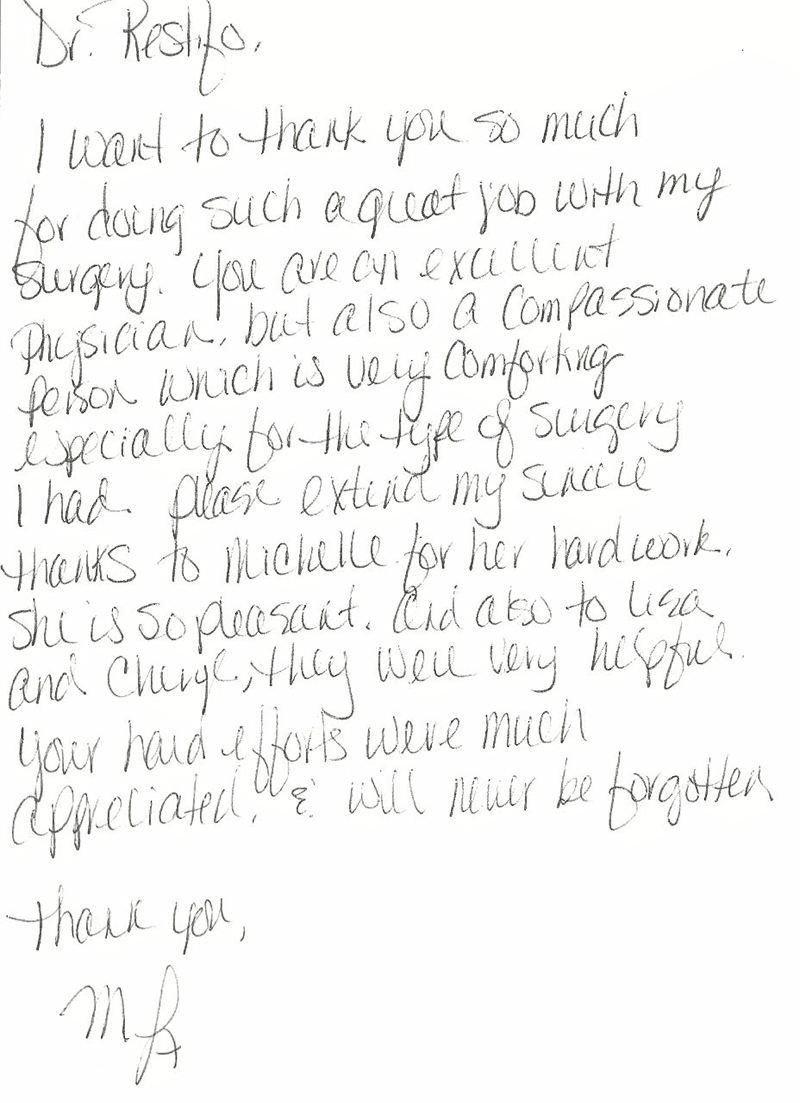 Dr. Restifo,
I want to thank you so much
for doing such a great job with my
surgery. You are an excellent
physician, but also a compassionate
person which is very comforting
especially for the type of surgery
I had. Please extend my sincere
thanks to Michelle for her hard work.
She is so pleasant. And also to Lisa
and Cheryl, they were very helpful.
Your hard efforts were much
appreciated, & will never be forgotten
Thank you,